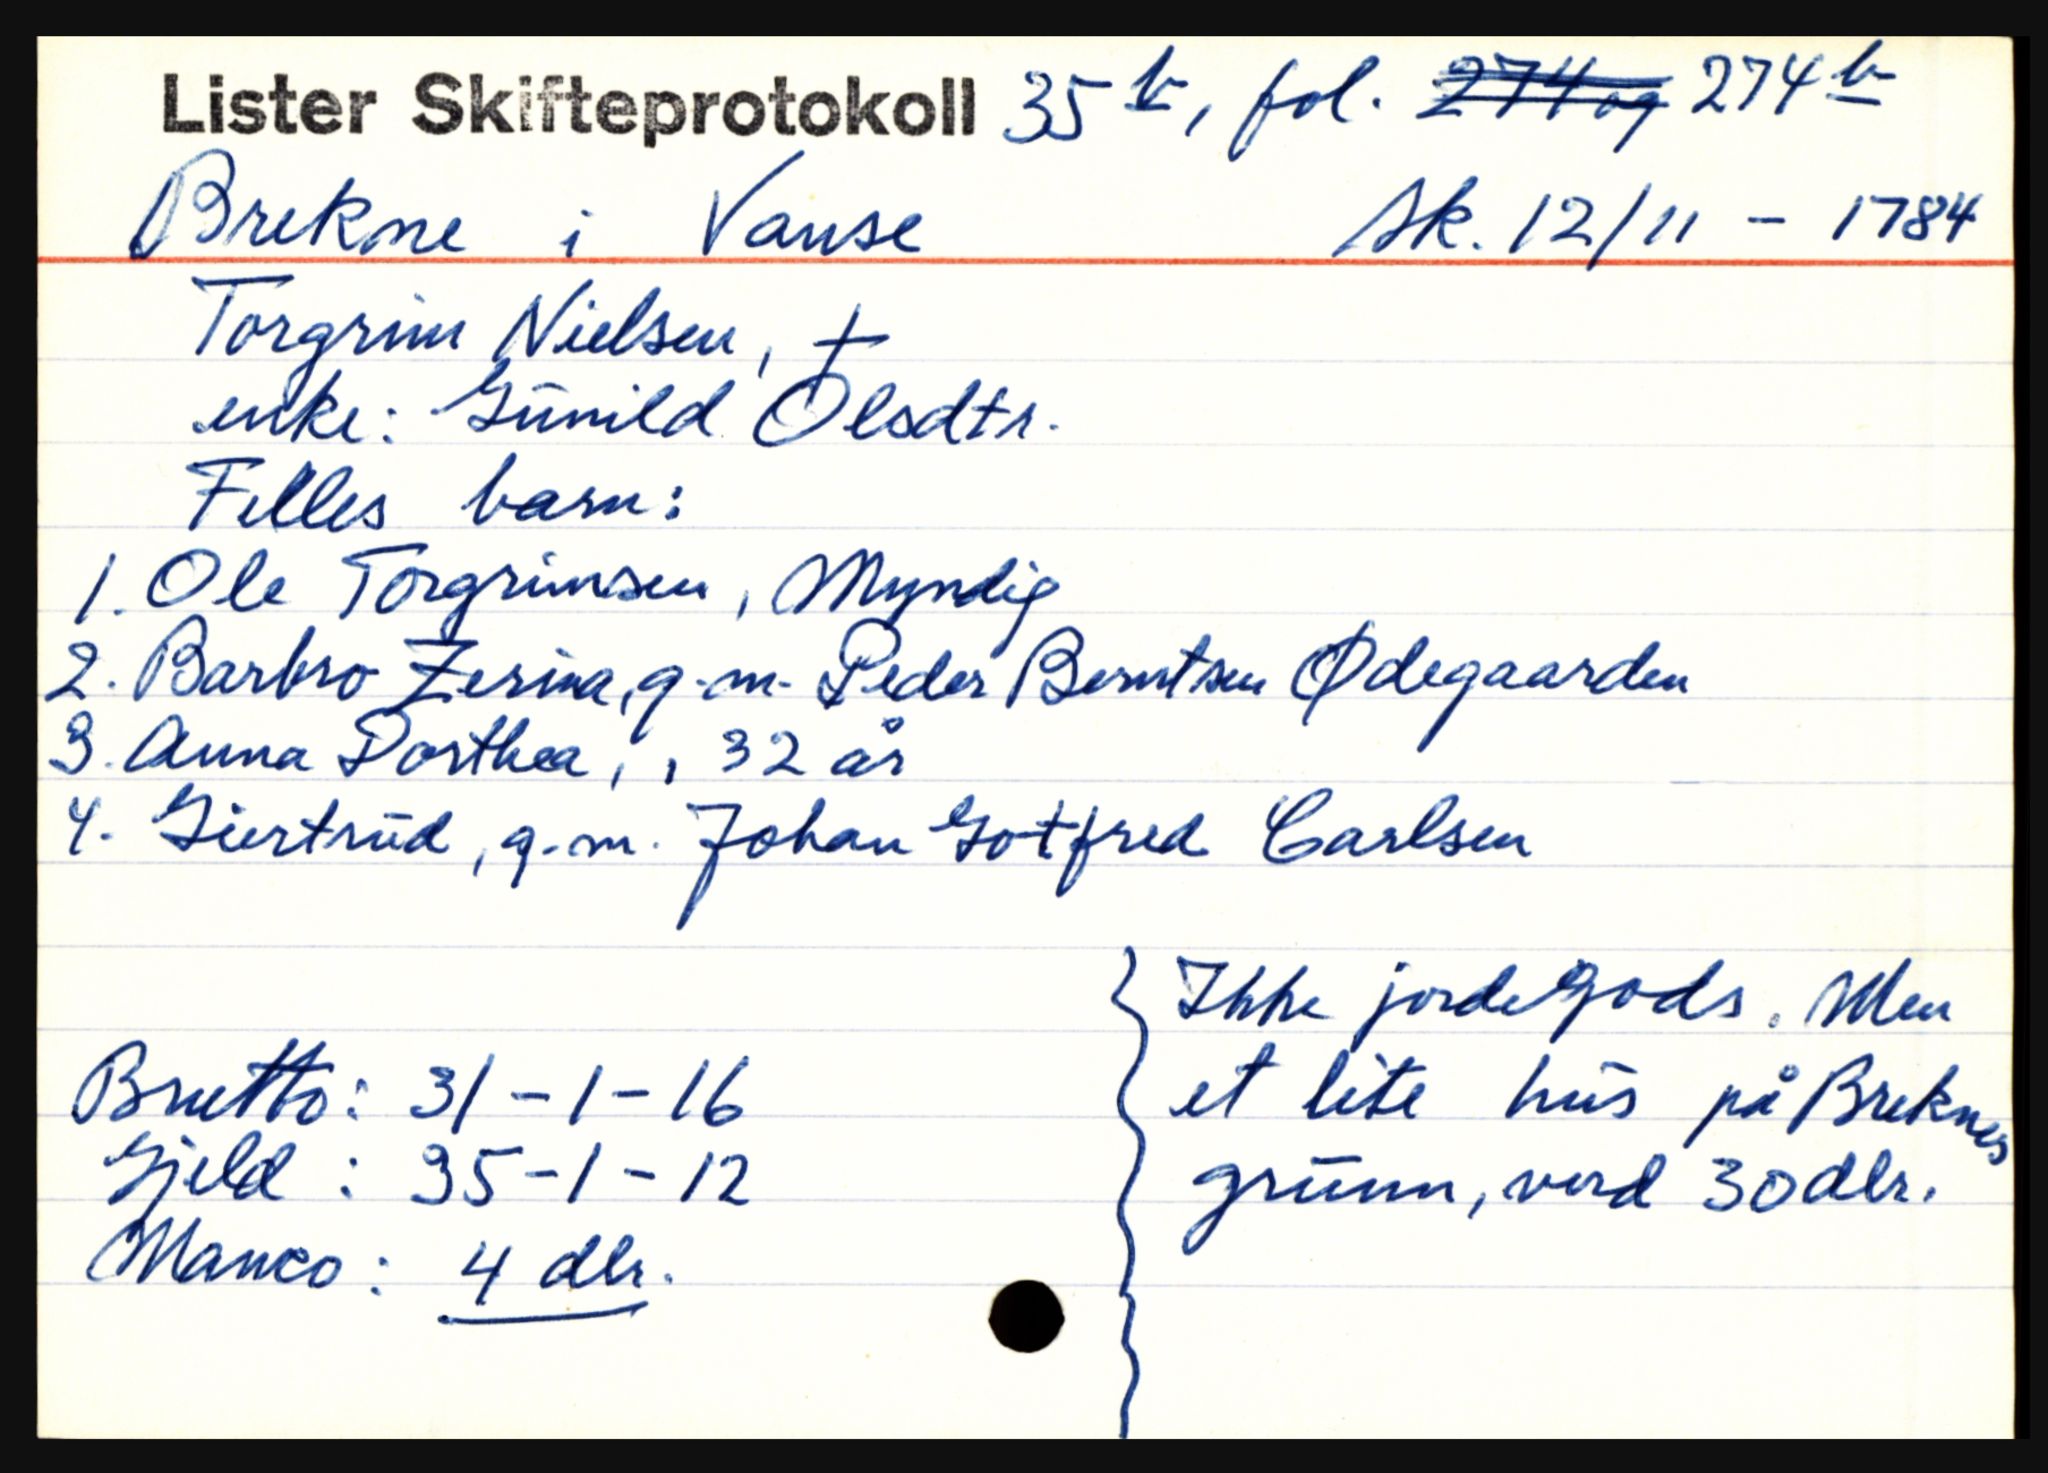 Lister Skifteprotokoll 35 b, fol. 274 og 274 b
Brekne i Vanse Sk. 12/11 - 1784
Torgrim Nielsen, †
enke: Gunild Olsdtr.
Felles barn:
1. Ole Torgrimsen, Myndig
2. Barbro Zerina, g.m. Peder Berntsen Ødegaarden
3. Anna Dorthea, , 32 år
4. Giertrud, g.m. Johan Gotfred Carlsen
Ikke jordegods. Men
et lite hus på Breknes
grunn, verd 30 dlr.
Brutto: 31 - 1 - 16
Gjeld : 35 - 1 - 12
Manco: 4 dlr.